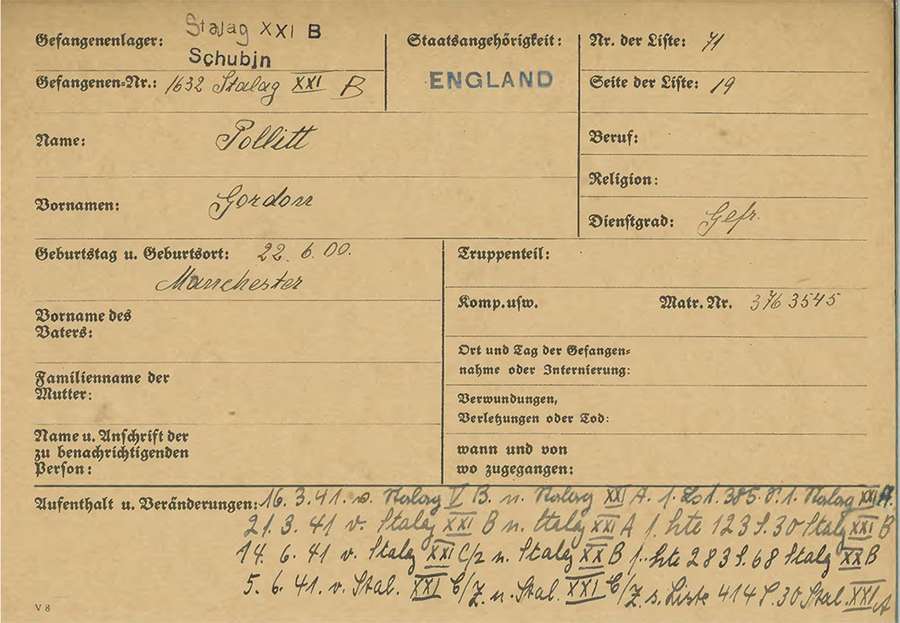 Gefangenenlager: Stalag XXI B
Schubin
Staatsangehörigkeit:
ENGLAND
Nr. der Liste: 71
Gefangenen-Nr.: 1632 Stalag XXI B
Seite der Liste: 19
Name: Pollitt
Beruf:
Religion:
Vornamen: Gordon
Dienstgrad: Gefr.
Geburtstag u. Geburtsort: 22. 6. 00.
Manchester
Truppenteil:
Komp. usw.
Matr. Nr. 3763545
Vorname des
Vaters:
Ort und Tag der Gefangen-
nahme oder Internierung:
Familienname der
Mutter:
Verwundungen,
Verletzungen oder Tod:
Name u. Anschrift der
zu benachrichtigenden
Person:
wann und von
wo zugegangen:
Aufenthalt u. Veränderungen: 16. 3. 41. v. Stalag V B. n. Stalag XXI A. 385 Stalag XXI A.
21. 3. 41 v. Stalag XXI B n. Stalag XXI A 123 S. 30 Stalag XXI B
14. 6. 41 v. Stalag XXI C/z n. Stalag XX B 283 S. 68 Stalag XX B
5. 6. 41. v. Stal. XXI C/Z. n. Stal. XXI C/Z. s. Liste 414 S. 30 Stal. XXI A
V 8